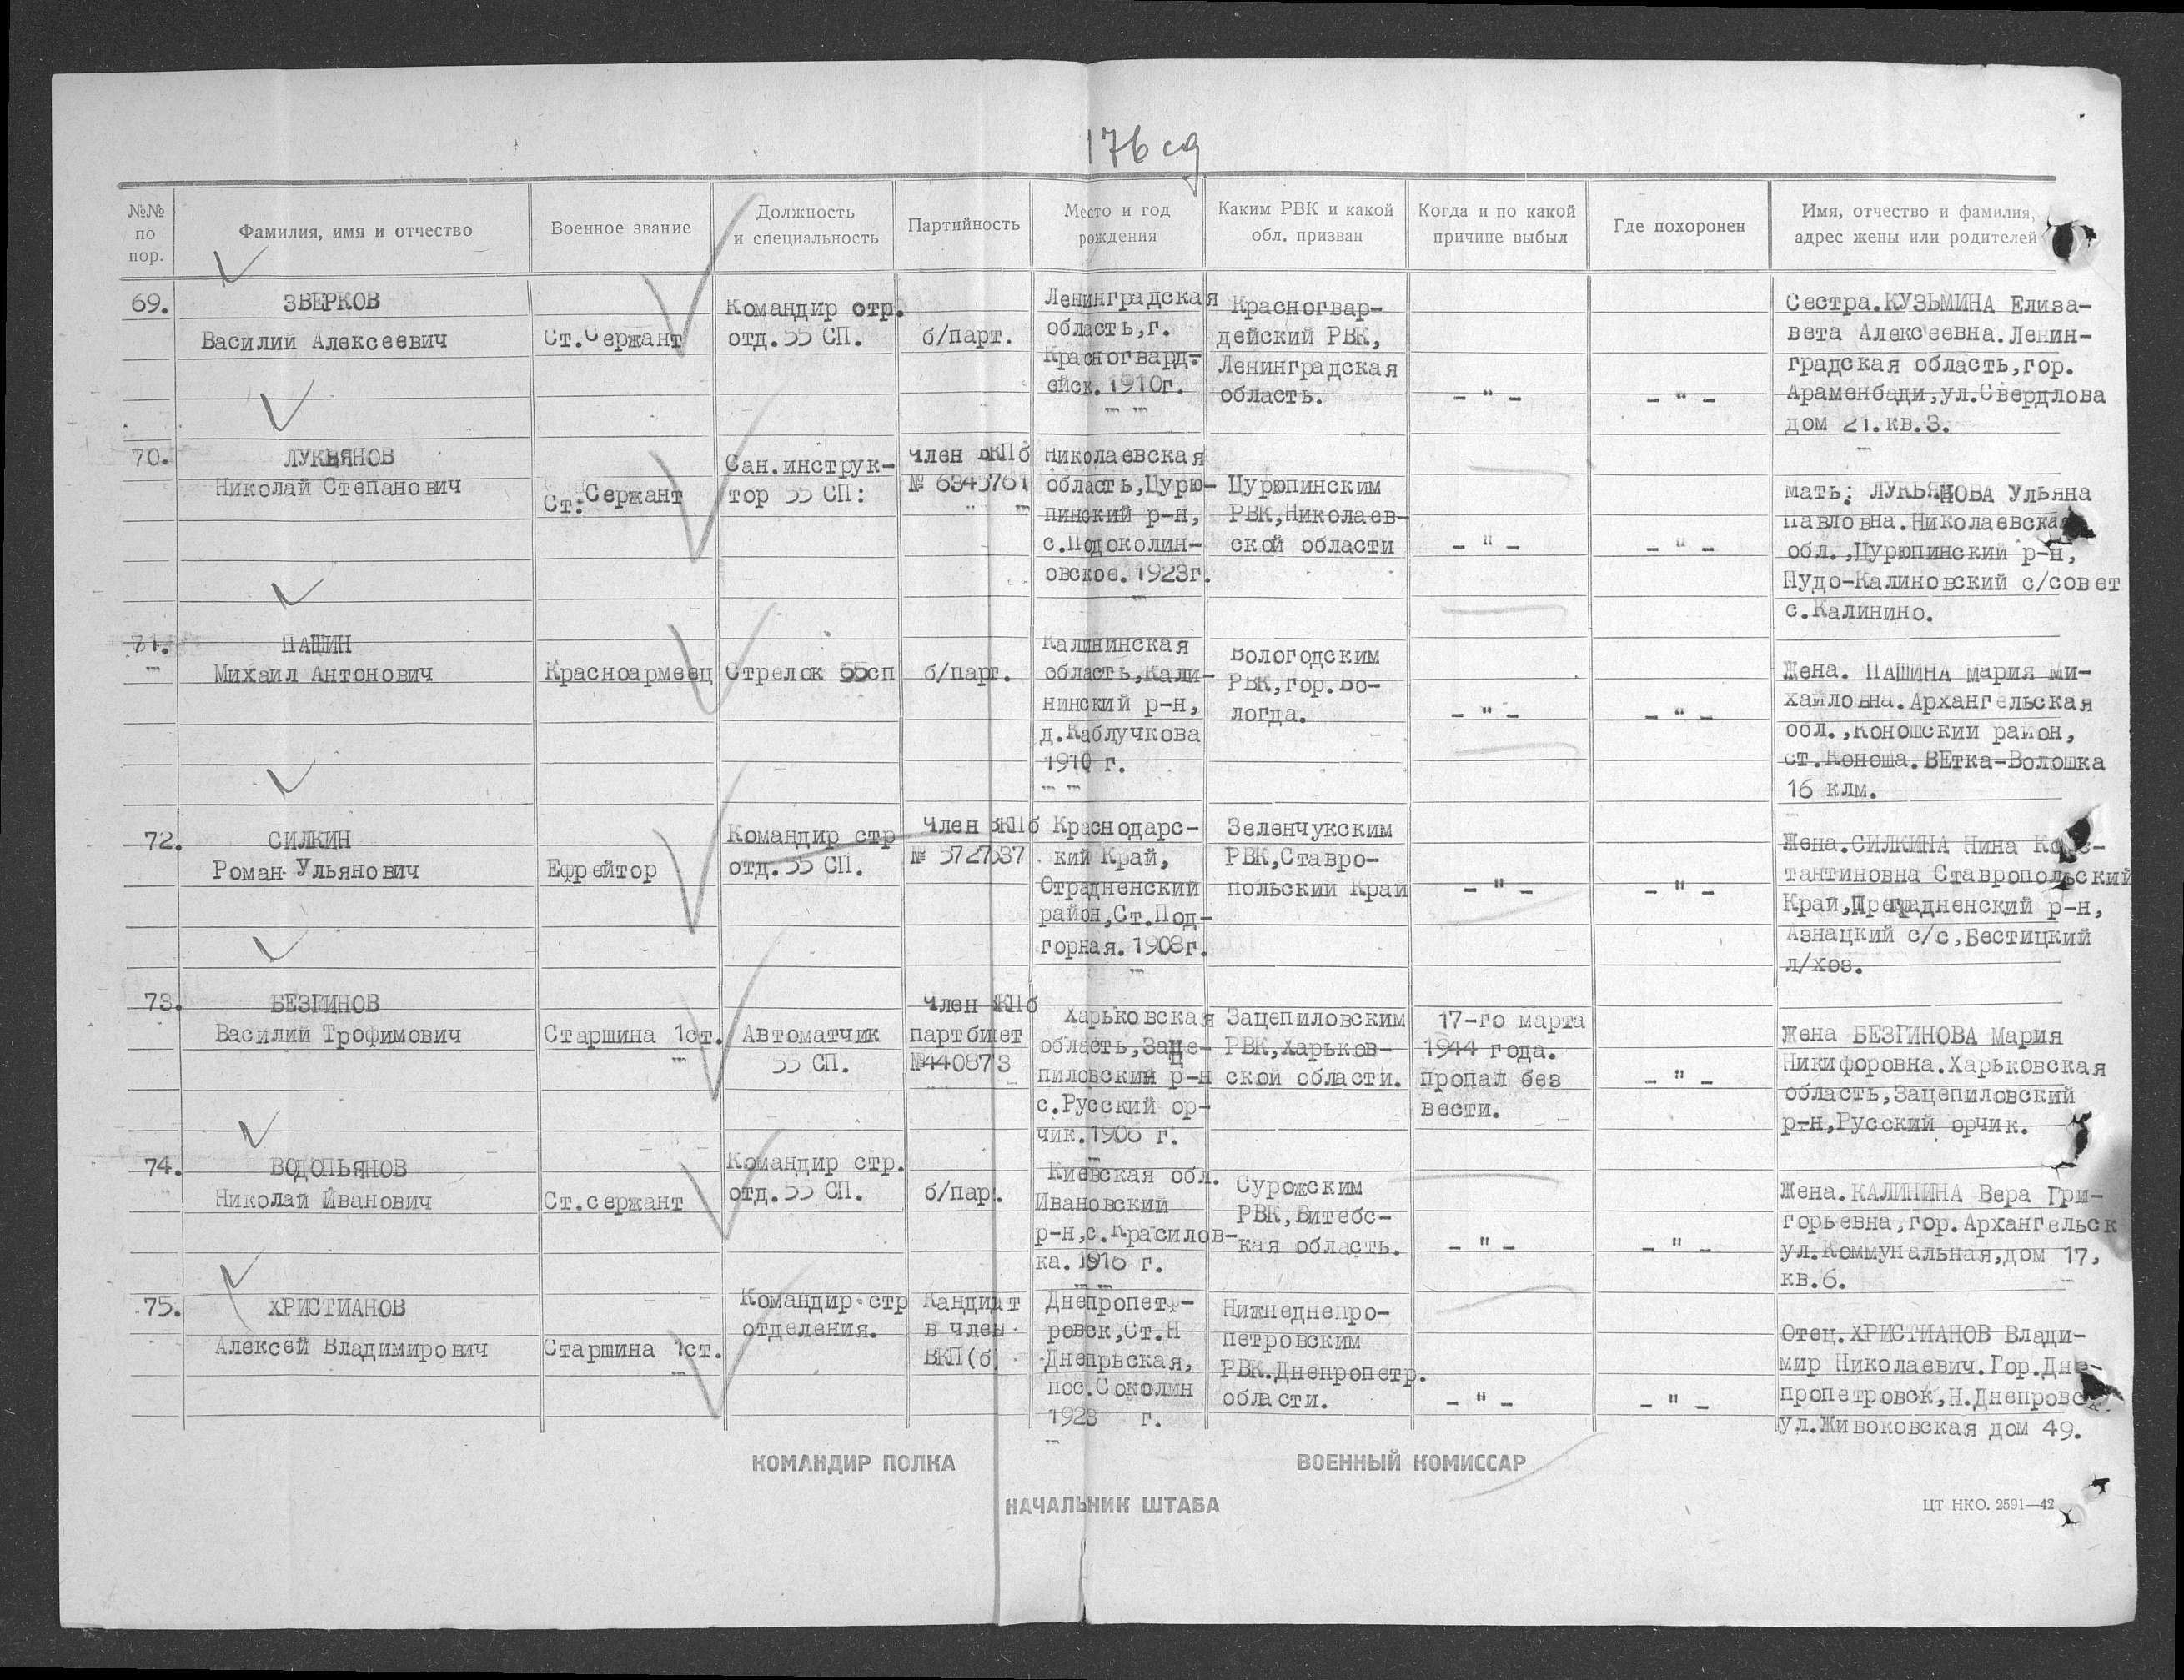 176 сд
№№ по пор.
Фамилия, имя и отчество
Военное звание
Должность и специальность
Партийность
Место и год рождения
Каким РВК и какой обл. призван
Когда и по какой причине выбыл
Где похоронен
Имя, отчество и фамилия, адрес жены или родителей
69.
ЗВЕРКОВ
Василий Алексеевич
Ст.Сержант
Командир отр.
отд.55 СП.
б/парт.
Ленинградская
область,г.
Красногвард-
ейск.1910г.
Красногвар-
дейский РВК,
Ленинградская
область.
- " -
- " -
Сестра.КУЗЬМИНА Елиза-
вета Алексеевна.Ленин-
градская область,гор.
Араменбади,ул.Свердлова
дом 21.кв.3.
70.
ЛУКЬЯНОВ
Николай Степанович
Ст.Сержант
Сан.инструк-
тор 55 СП:
Член ВКПб
№ 6345761
Николаевская
область,Цурю-
пинский р-н,
с.Подоколин-
овское.1923г.
Цурюпинским
РВК,Николаев-
ской области
- " -
- " -
мать: ЛУКЬЯНОВА Ульяна
Павловна.Николаевская
обл.,Цурюпинский р-н,
Пудо-Калиновский с/совет
с.Калинино.
71.
ПАШИН
Михаил Антонович
Красноармеец
Стрелок 55сп
б/парт.
Калининская
область,Кали-
нинский р-н,
д.Каблучкова
1910 г.
Вологодским
РВК,гор.Во-
логда.
- " -
- " -
Жена. ПАШИНА Мария Ми-
хайловна.Архангельская
обл.,Коношский район,
ст.Коноша.ВЕтка-Волошка
16 клм.
72.
СИЛКИН
Роман Ульянович
Ефрейтор
Командир стр
отд.55 СП.
Член ВКПб
№ 5727537
Краснодарс-
кий Край,
Отрадненский
район,Ст.Под-
горная.1908г.
Зеленчукским
РВК,Ставро-
польский Край
- " -
- " -
Жена.СИЛКИНА Нина
тантиновна Ставропольский
Край,Преградненский р-н,
Азнацкий с/с,Бестицкий
л/хоз.
73.
БЕЗГИНОВ
Василий Трофимович
Старшина 1ст.
Автоматчик
55 СП.
Член ВКПб
партбилет
№4408713
Харьковская
область,Заце-
пиловский р-н
с.Русский ор-
чик.1906 г.
Зацепиловским
РВК,Харьков-
ской области.
17-го марта
1944 года.
пропал без
вести.
- " -
Жена БЕЗГИНОВА Мария
Никифоровна.Харьковская
область,Зацепиловский
р-н,Русский орчик.
74.
ВОДОПЬЯНОВ
Николай Иванович
Ст.сержант
Командир стр.
отд.55 СП.
б/пар.
Киевская обл.
Ивановский
р-н,с.Красилов-
ка.1916 г.
Сурожским
РВК,Витебс-
кая область.
- " -
- " -
Жена.КАЛИНИНА Вера Гри-
горьевна,гор.Архангельск
ул.Коммунальная,дом 17,
кв.6.
75.
ХРИСТИАНОВ
Алексей Владимирович
Старшина 1ст.
Командир стр
отделения.
Кандидат
в член
ВКП(б)
Днепропетр-
ровск,Ст.Н
Днепрвская,
пос.Соколин
1923 г.
Нижнеднепро-
петровским
РВК.Днепропетр.
области.
- " -
- " -
Отец.ХРИСТИАНОВ Влади-
мир Николаевич.Гор.Дне-
пропетровск,Н.Днепровск
ул.Живоковская дом 49.
КОМАНДИР ПОЛКА
ВОЕННЫЙ КОМИССАР
НАЧАЛЬНИК ШТАБА
ЦТ НКО. 2591—42